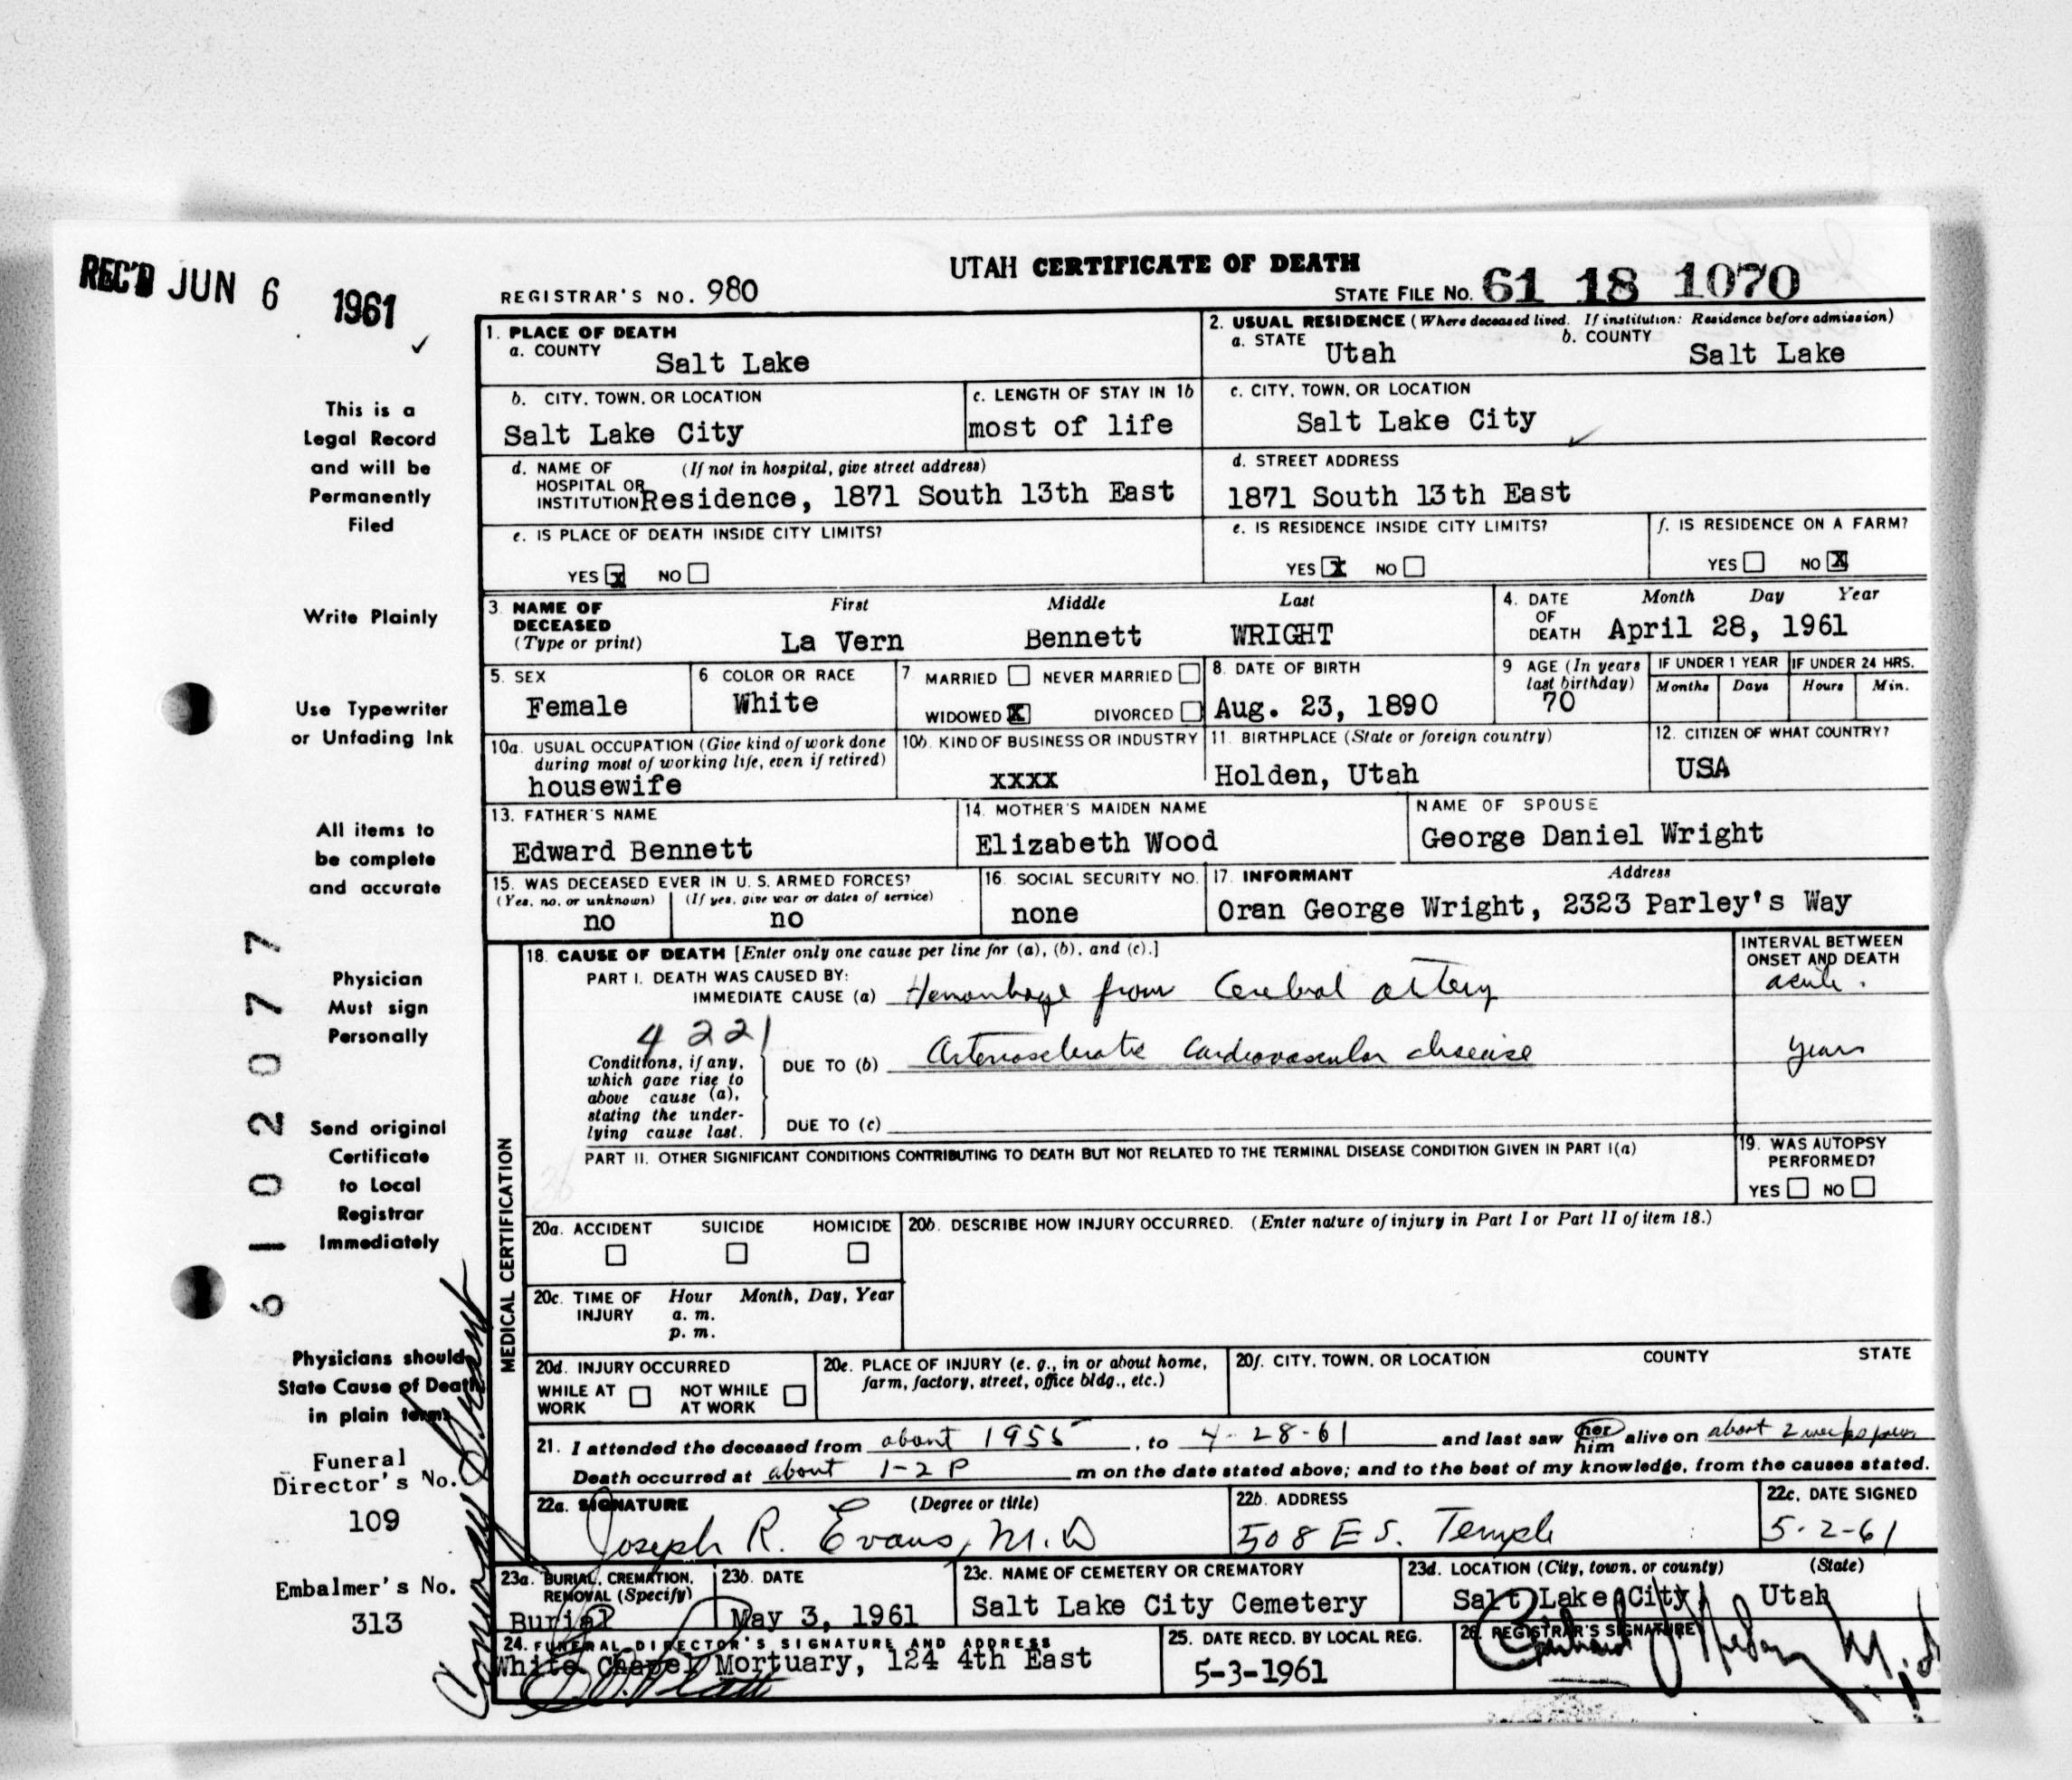 REC'D JUN 6 1961
UTAH CERTIFICATE OF DEATH
REGISTRAR'S NO. 980
STATE FILE NO. 61 18 1070
✓
This is a
Legal Record
and will be
Permanently
Filed
Write Plainly
Use Typewriter
or Unfading Ink
All items to
be complete
and accurate
Physician
Must sign
Personally
Send original
Certificate
to Local
Registrar
Immediately
Physicians should
State Cause of Death
in plain terms
Funeral
Director's No.
109
Embalmer's No.
313
6102077
1. PLACE OF DEATH
a. COUNTY
Salt Lake
2. USUAL RESIDENCE (Where deceased lived. If institution: Residence before admission)
a. STATE Utah b. COUNTY Salt Lake
b. CITY, TOWN, OR LOCATION
Salt Lake City
c. LENGTH OF STAY IN 1b
most of life
c. CITY, TOWN, OR LOCATION
Salt Lake City
d. NAME OF (If not in hospital, give street address)
HOSPITAL OR
INSTITUTION Residence, 1871 South 13th East
d. STREET ADDRESS
1871 South 13th East
e. IS PLACE OF DEATH INSIDE CITY LIMITS?
YES X NO
e. IS RESIDENCE INSIDE CITY LIMITS?
YES X NO
f. IS RESIDENCE ON A FARM?
YES NO X
3. NAME OF DECEASED
(Type or print)
First Middle Last
La Vern Bennett WRIGHT
4. DATE OF DEATH
Month Day Year
April 28, 1961
5. SEX
Female
6 COLOR OR RACE
White
7 MARRIED NEVER MARRIED
WIDOWED X DIVORCED
8. DATE OF BIRTH
Aug. 23, 1890
9 AGE (In years
last birthday)
70
IF UNDER 1 YEAR
Months Days
IF UNDER 24 HRS.
Hours Min.
10a. USUAL OCCUPATION (Give kind of work done
during most of working life, even if retired)
housewife
10b. KIND OF BUSINESS OR INDUSTRY
xxxx
11. BIRTHPLACE (State or foreign country)
Holden, Utah
12. CITIZEN OF WHAT COUNTRY?
USA
13. FATHER'S NAME
Edward Bennett
14. MOTHER'S MAIDEN NAME
Elizabeth Wood
NAME OF SPOUSE
George Daniel Wright
15. WAS DECEASED EVER IN U. S. ARMED FORCES?
(Yes, no, or unknown) (If yes, give war or dates of service)
no no
16. SOCIAL SECURITY NO.
none
17. INFORMANT Address
Oran George Wright, 2323 Parley's Way
MEDICAL CERTIFICATION
18. CAUSE OF DEATH [Enter only one cause per line for (a), (b), and (c).]
INTERVAL BETWEEN
ONSET AND DEATH
PART I. DEATH WAS CAUSED BY:
IMMEDIATE CAUSE (a) Hemorrhage from Cerebral artery acute.
4221
Conditions, if any,
which gave rise to
above cause (a),
stating the under-
lying cause last.
DUE TO (b) Arteriosclerotic Cardiovascular disease years
DUE TO (c)
PART II. OTHER SIGNIFICANT CONDITIONS CONTRIBUTING TO DEATH BUT NOT RELATED TO THE TERMINAL DISEASE CONDITION GIVEN IN PART I(a)
19. WAS AUTOPSY
PERFORMED?
YES NO
20a. ACCIDENT SUICIDE HOMICIDE
20b. DESCRIBE HOW INJURY OCCURRED. (Enter nature of injury in Part I or Part II of item 18.)
20c. TIME OF INJURY
Hour Month, Day, Year
a. m.
p. m.
20d. INJURY OCCURRED
WHILE AT WORK NOT WHILE AT WORK
20e. PLACE OF INJURY (e. g., in or about home,
farm, factory, street, office bldg., etc.)
20f. CITY, TOWN, OR LOCATION COUNTY STATE
21. I attended the deceased from about 1955, to 4-28-61 and last saw her him alive on about 2 weeks
Death occurred at about 1-2 P m on the date stated above; and to the best of my knowledge, from the causes stated.
22a. SIGNATURE (Degree or title)
Joseph R. Evans, M.D
22b. ADDRESS
508 E S. Temple
22c. DATE SIGNED
5-2-61
23a. BURIAL, CREMATION,
REMOVAL (Specify)
Burial
23b. DATE
May 3, 1961
23c. NAME OF CEMETERY OR CREMATORY
Salt Lake City Cemetery
23d. LOCATION (City, town, or county) (State)
Salt Lake City Utah
24. FUNERAL DIRECTOR'S SIGNATURE AND ADDRESS
White Chapel Mortuary, 124 4th East
25. DATE RECD. BY LOCAL REG.
5-3-1961
26. REGISTRAR'S SIGNATURE